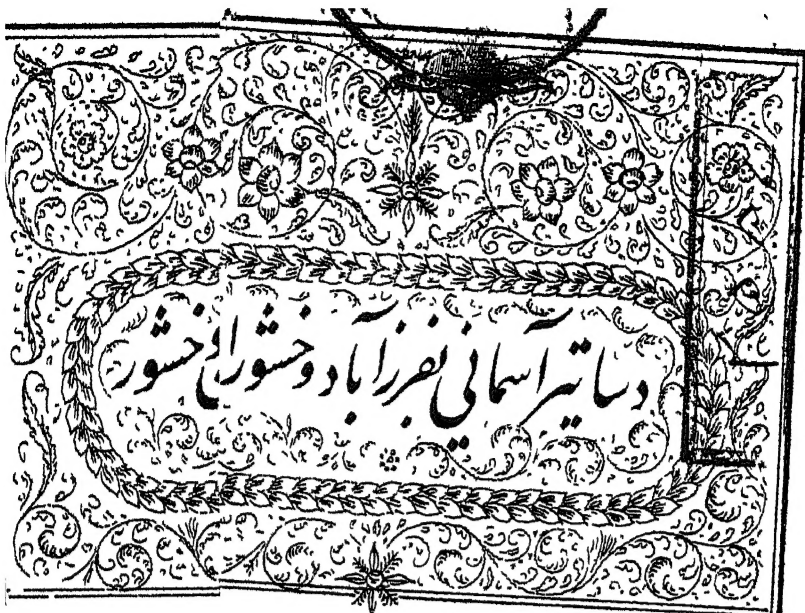 دساتیر آسماني بفرزآباد وخشوران وخشور